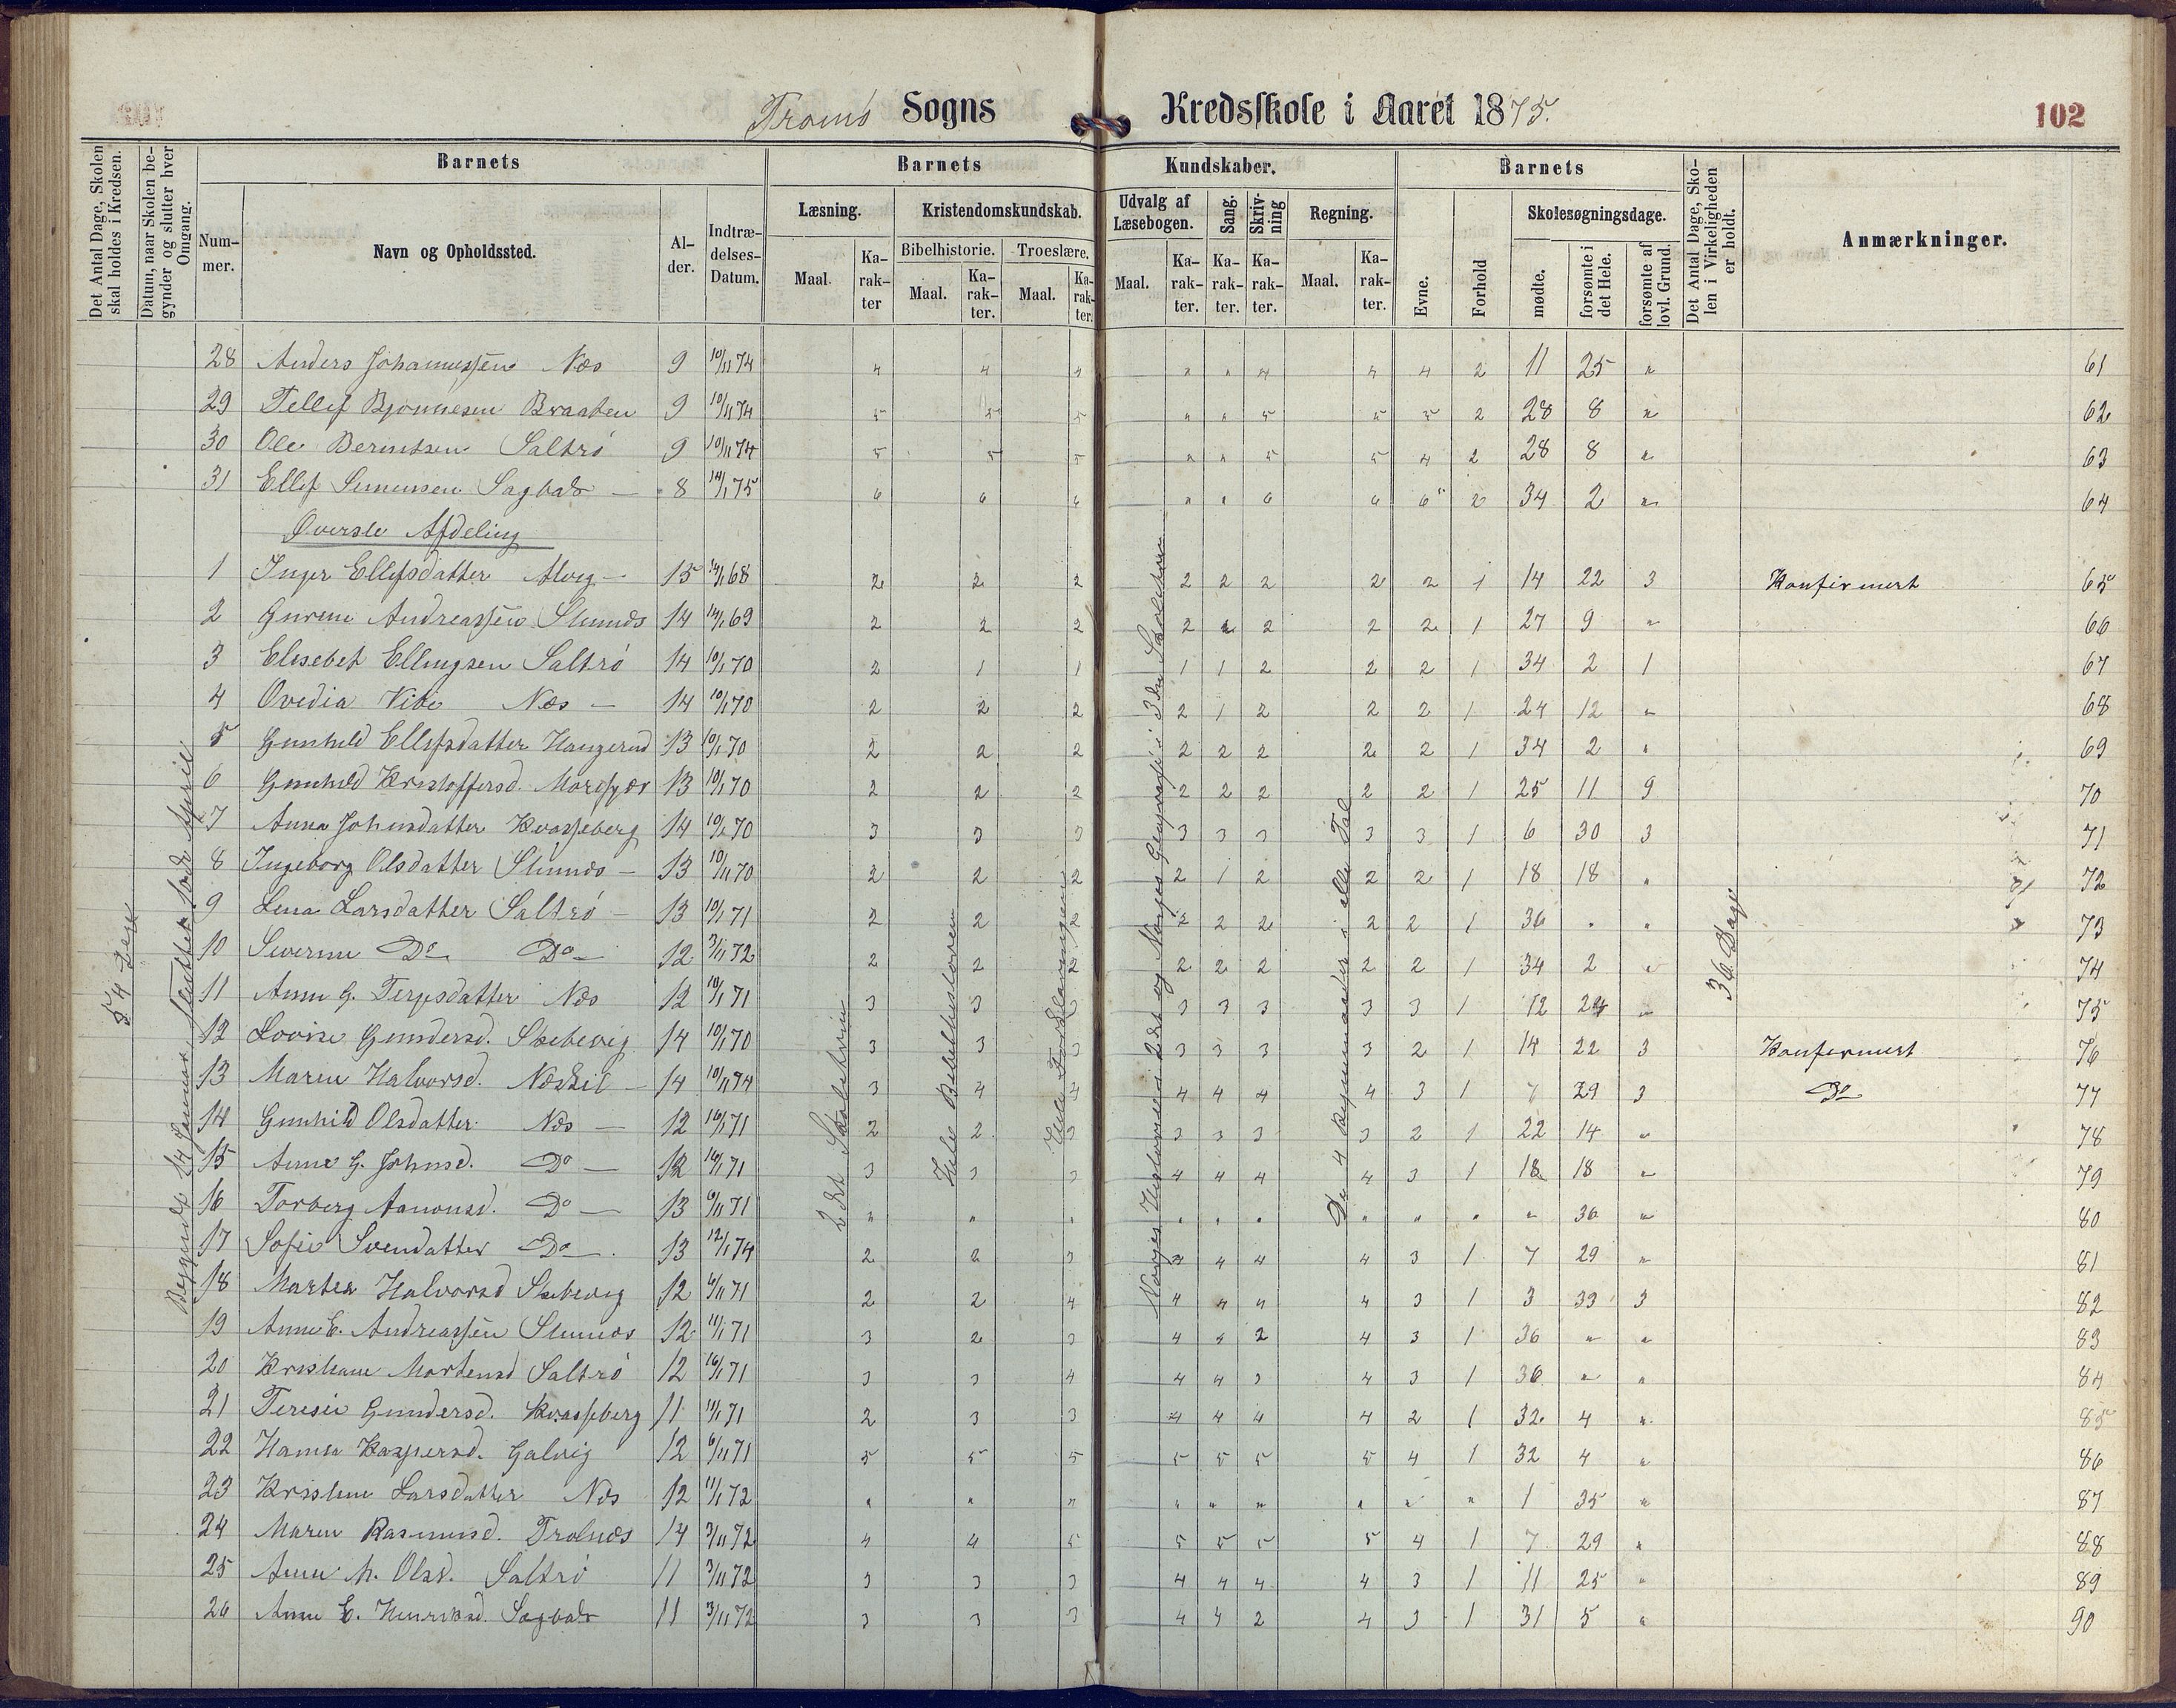 Tromö Sogns Kredsskole i Aaret 1875. 102
Det Antal Dage, Skolen skal holdes i Kredsen.
Datum, naar Skolen begynder og slutter hver Omgang.
Barnets Barnets Kundskaber. Barnets
Nummer. Navn og Opholdssted. Alder. Indtrædelses-Datum.
Læsning. Kristendomskundskab. Udvalg af Læsebogen. Sang. Skrivning Regning. Evne. Forhold Skolesøgningsdage.
Bibelhistorie. Troeslære.
Maal. Karakter Maal. Karakter. Maal. Karakter. Maal. Karakter. Karakter. Karakter. Maal. Karakter. mødte. forsømte i det Hele. forsømte af lovl. Grund.
Det Antal Dage, Skolen i Virkeligheden er holdt.
Anmærkninger.
28 Anders Johannessen Næs 9 10/11 74 4 4 4 " " 4 4 4 2 11 25 " 61
29 Tellef Bjonnesen Braaten 9 10/11 74 5 5 5 " " 5 5 5 2 28 8 " 62
30 Ole Berntsen Saltrö 9 10/11 74 5 5 5 " " 5 5 4 2 28 8 " 63
31 Ellef Simensen Sagbak 8 14/1 75 6 6 6 " " 6 6 6 2 34 2 " 64
Øverste Afdeling
1 Inger Ellefsdatter Alvig 15 68 2 2 2 2 2 2 2 2 1 14 22 3 Konfirmert 65
2 Andreassen 14 69 2 2 2 2 2 2 2 2 1 27 9 " 66
3 Elisebet Ellingsen Saltrö 14 10/1 70 2 1 1 1 1 2 2 2 1 34 2 1 67
4 Ovedia Vibe Næs 14 10/1 70 2 2 2 2 1 2 2 2 1 24 12 " 68
5 Gunhild Ellefsdatter Haugerud 13 10/1 70 2 2 2 2 2 2 2 2 1 34 2 " 69
6 Gunhild Kristoffersd. 13 10/1 70 2 2 2 2 2 2 2 2 1 25 11 9 70
7 Anna Johnsdatter Kvasseberg 14 70 3 3 3 3 3 3 3 3 1 6 30 3 71
8 Ingeborg Olsdatter 13 10/11 70 2 2 2 2 1 2 2 2 1 18 18 " 72
9 Lena Larsdatter Saltrö 13 10/1 71 2 2 2 2 2 2 2 2 1 36 " " 73
10 Do Do 12 3/11 72 2 2 2 2 2 2 2 2 1 34 2 " 74
11 Anne G. Terjesdatter Næs 12 10/1 71 3 3 3 3 3 3 3 3 1 12 24 " 75
12 Lovise Gundersd. Skibevig 14 10/1 70 3 3 3 3 3 3 3 2 1 14 22 3 Konfirmert 76
13 Maren Halvorsd. Næskil 14 10/11 74 3 4 4 4 4 4 4 3 1 7 29 3 Do 77
14 Gunhild Olsdatter Næs 12 16/1 71 2 2 3 3 3 3 3 2 1 22 14 " 78
15 Anne G. Johnsd. Do 12 16/1 71 3 3 3 4 4 4 4 3 1 18 18 " 79
16 Torberg Aanonsd. Do 13 6/11 71 " " " " " " " " " " 36 " 80
17 Sofie Svendatter Do 13 12/1 74 2 2 3 3 4 4 4 3 1 7 29 " 81
18 Martea Halvorsd Skibevig 12 6/11 71 2 2 4 4 4 4 4 3 1 3 33 3 82
19 Anne E. Andreassen 12 11/1 71 3 2 3 4 4 2 4 3 1 36 " " 83
20 Kristiane Mortensd Saltrö 12 16/1 71 3 3 4 4 4 3 4 3 1 36 " " 84
21 Teresie Gundersd. Kvasseberg 11 11/1 71 2 3 3 4 4 4 4 2 1 32 4 " 85
22 Hanna Kaspersd. Galvig 12 6/11 71 5 5 5 5 5 5 5 4 1 32 4 " 86
23 Larsdatter Næs 12 11/1 72 " " " " " " " " " 1 35 " 87
24 Maren Rasmusd. Trolnæs 14 3/11 72 4 4 5 5 5 5 5 4 1 7 29 " 88
25 Anne M. Olsd. Saltrö 11 3/11 72 3 3 3 4 4 4 4 3 1 11 25 " 89
26 Anne E. Henriksd. Sagbak 11 3/11 72 3 3 3 4 4 2 4 3 1 31 5 " 90
54
Begyndte 14 Januar sluttet April
2det Skoletrin
Hele Bibelhistorien
Hele Forklaringen
Norges Historie i 2det og Norges Geografi i 3die Skoletrin
De 4 Regnemaader i alle Tal
36 Dage